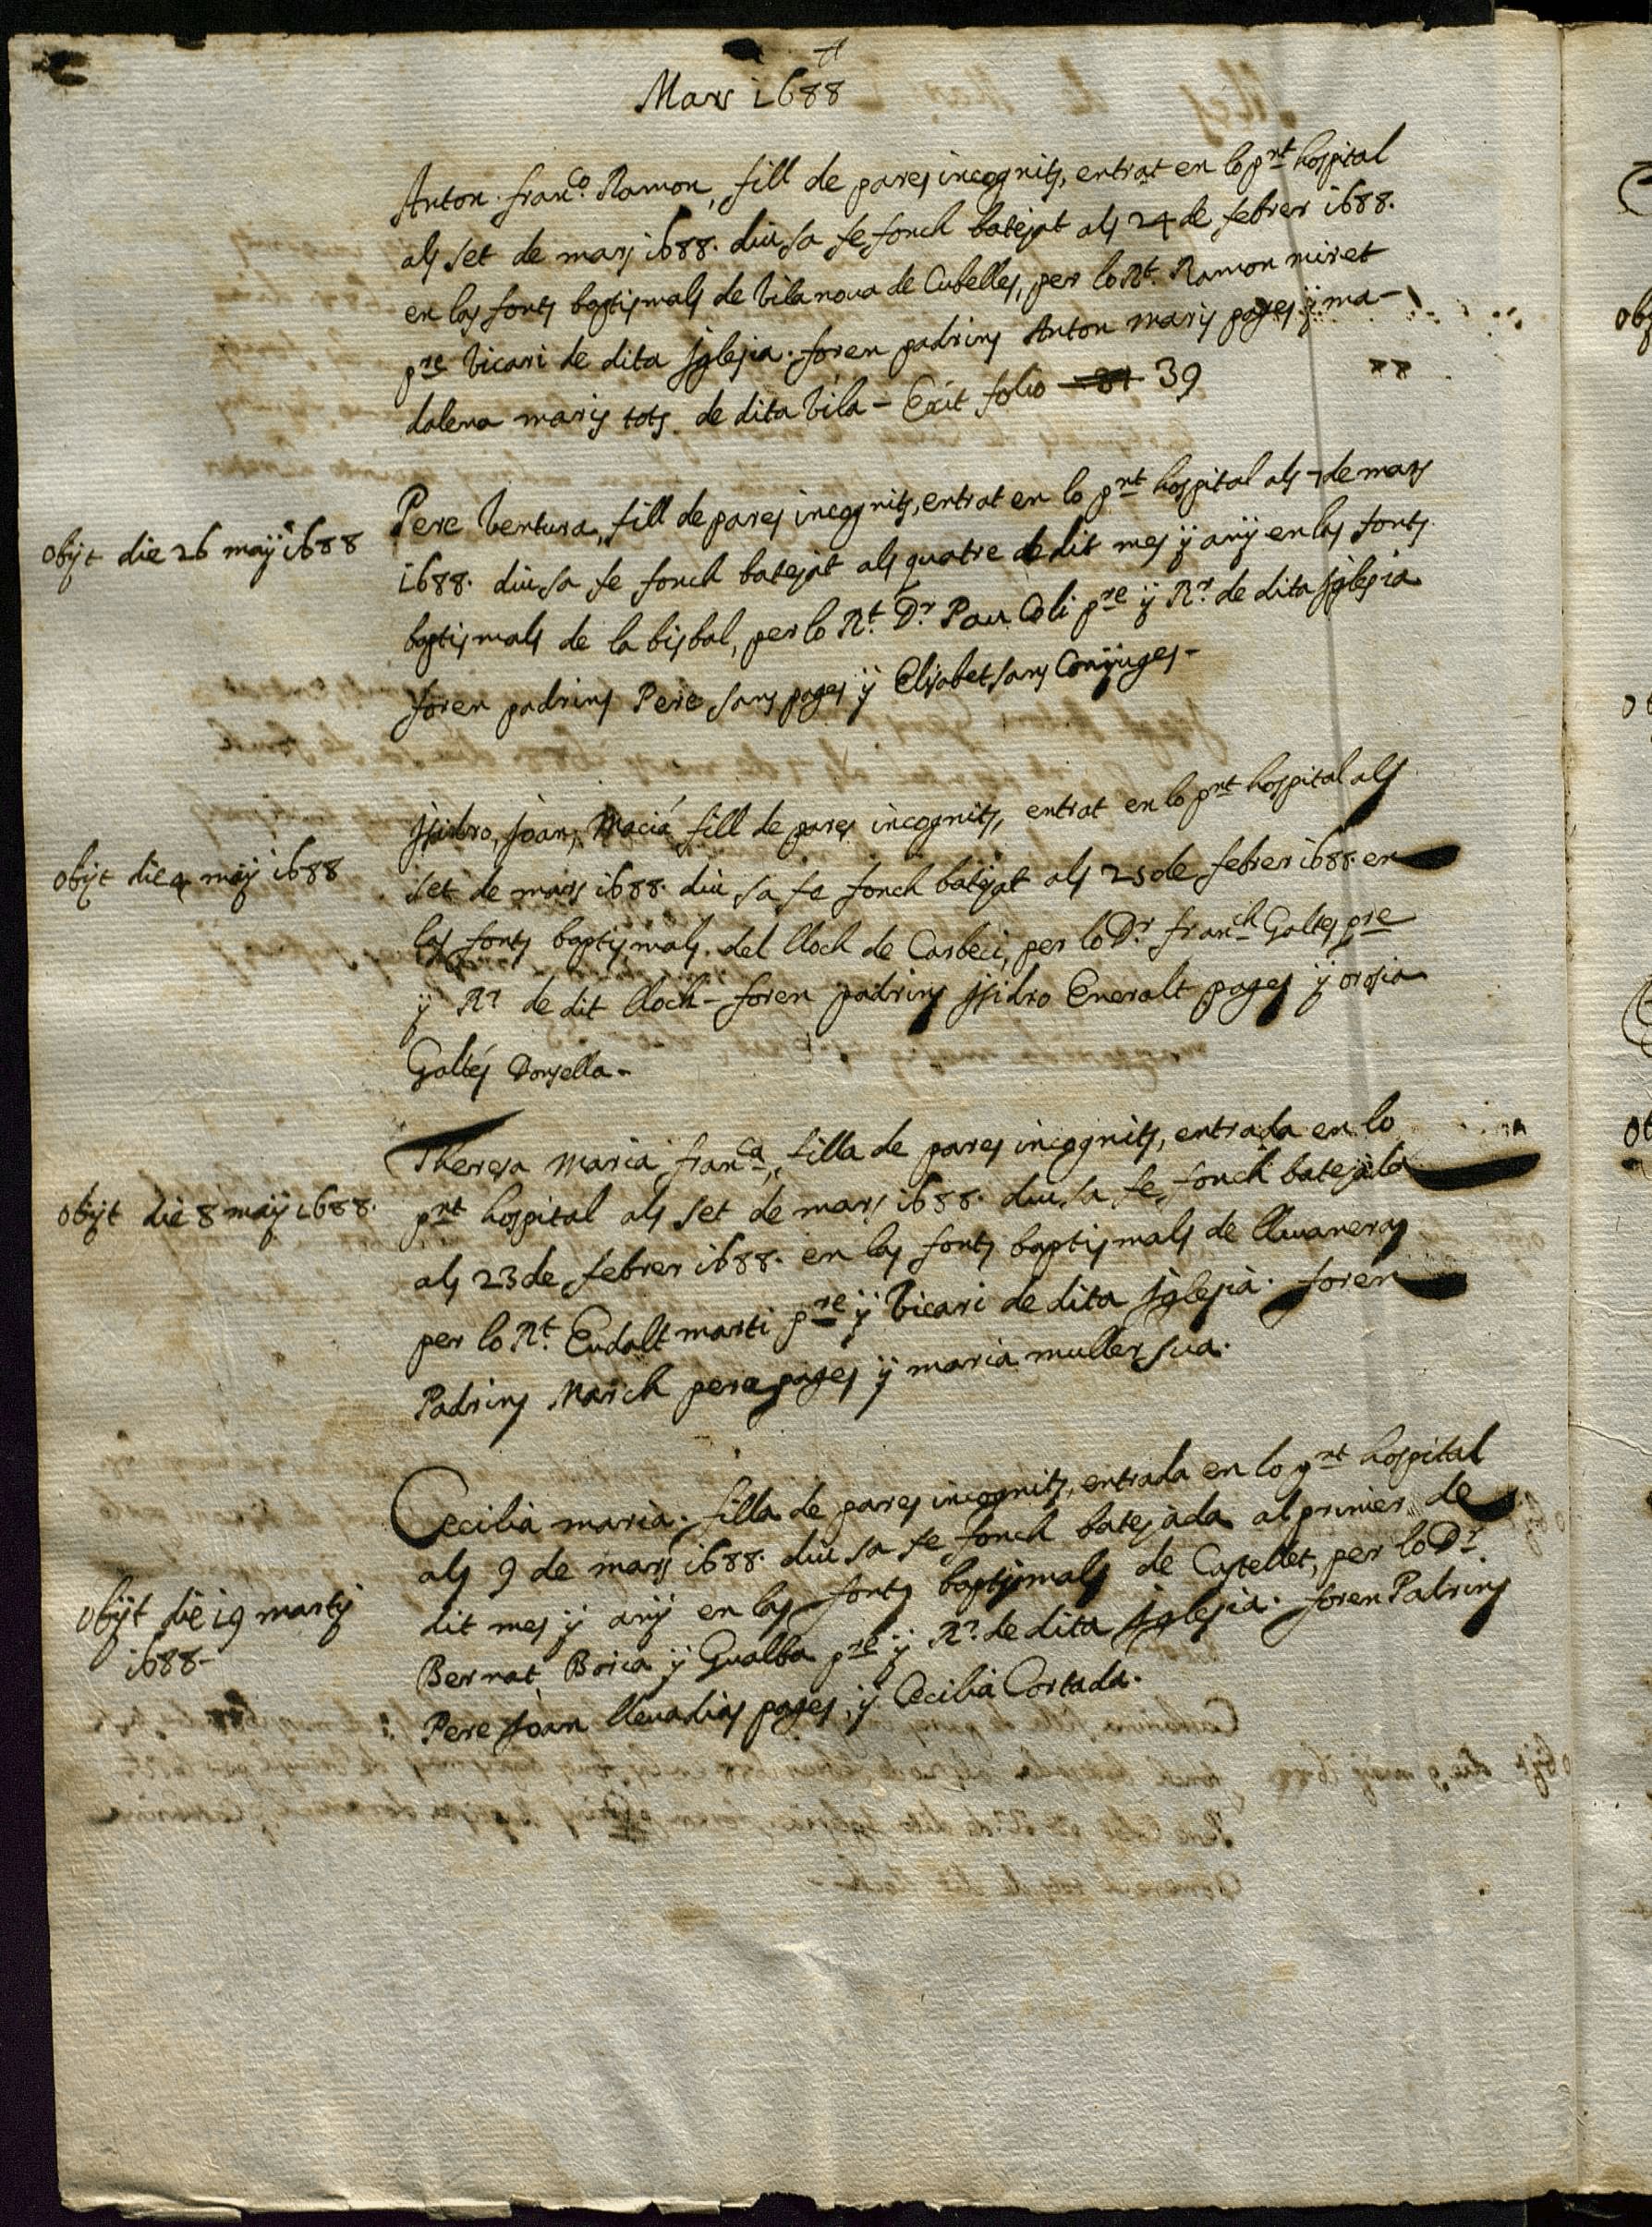 Mars 1688
Anton franco. Ramon, fill de pares incognits, entrat en lo pnt hospital
als set de mars 1688. diu sa fe fonch batejat als 24 de febrer 1688.
en las fonts baptismals de Vilanova de Cubelles, per lo Rt. Ramon miret
pre Vicari de dita Iglesia. foren padrins Anton maris pages ÿ ma-
dalena maris tots de dita Vila - Exit folio 39
Pere Ventura, fill de pares incognits, entrat en lo pnt hospital als 7 de mars
obijt die 26 maÿ 1688
1688. diu sa fe fonch batejat als quatre de dit mes ÿ anÿ en las fonts
baptismals de la bisbal, per lo Rt. Dr Pau Coli pre ÿ Rr. de dita Iglesia
foren padrins Pere sans pages ÿ Elisabet sans Conÿuges -
Isidro, Joan, Maciá fill de pares incognits, entrat en lo pnt hospital als
obijt die 4 maÿ 1688
set de mars 1688. diu sa fe fonch batejat als 25 de febrer 1688. en
las fonts baptismals. del lloch de Carbeci, per lo Dr. franch Galtes pre
ÿ Rr. de dit lloch - foren padrins Isidro Eneralt pages ÿ orosia
Galtés Donsella -
Theresa Maria franca, filla de pares incognits, entrada en lo
obijt die 8 maÿ 1688.
pnt hospital als set de mars 1688. diu sa fe, fonch batejada
als 23 de febrer 1688. en las fonts baptismals de lluaneras
per lo Rt. Eudalt marti pre ÿ Vicari de dita Iglesia. foren
Padrins March pera pages ÿ maria muller sua.
Cecilia maria. filla de pares incognits, entrada en lo pnt hospital
als 9 de mars 1688. diu sa fe fonch batejada al primer de
obijt die 19 martij
1688 -
dit mes ÿ anÿ en las fonts baptismals de Castellet, per lo Dr.
Bernat Boica ÿ Gualba pre ÿ Rr. de dita Iglesia. foren Padrins
Pere Joan llevadias pages, ÿ Cecilia Cortada.